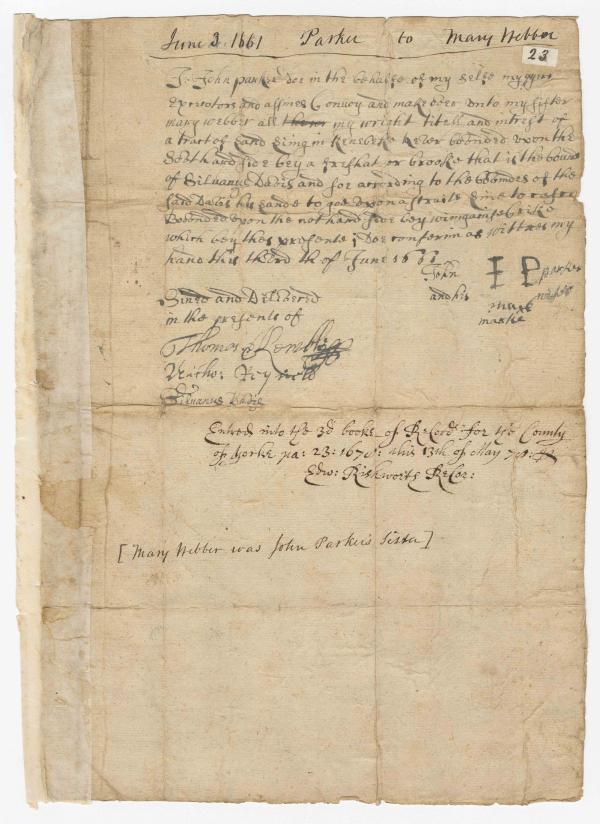 June 3. 1661 Parker to Mary Webber
23
I John parker doe in the behalfe of my selfe my
Executors and assines Convay and make over unto my sister
mary webber all my wright titell and intrest of
a tract of Land Liing in Kenebeke River bounded upon the
South hand side bey a freshat or brooke that is the bound
of Silvanus Davis and soe according to the boundes of the
said Davis his lande to goe upon a straite line to
Bounded upon the noth hand side bey
which bey thes presents I doe conferm as wittnes my
hand this third th of June 1661
John I P parker
and his mark
marke
Sined and Delivered
in the presents of
Thomas Kemble
Nicho: Reynels
Silvanus Davis
Entred into the 3d booke of Records for the County
of Yorke pa: 23: 1670: this 13th of May 70:
Edw: Rishworth ReCor:
[Mary Webber was John Parker's Sister]